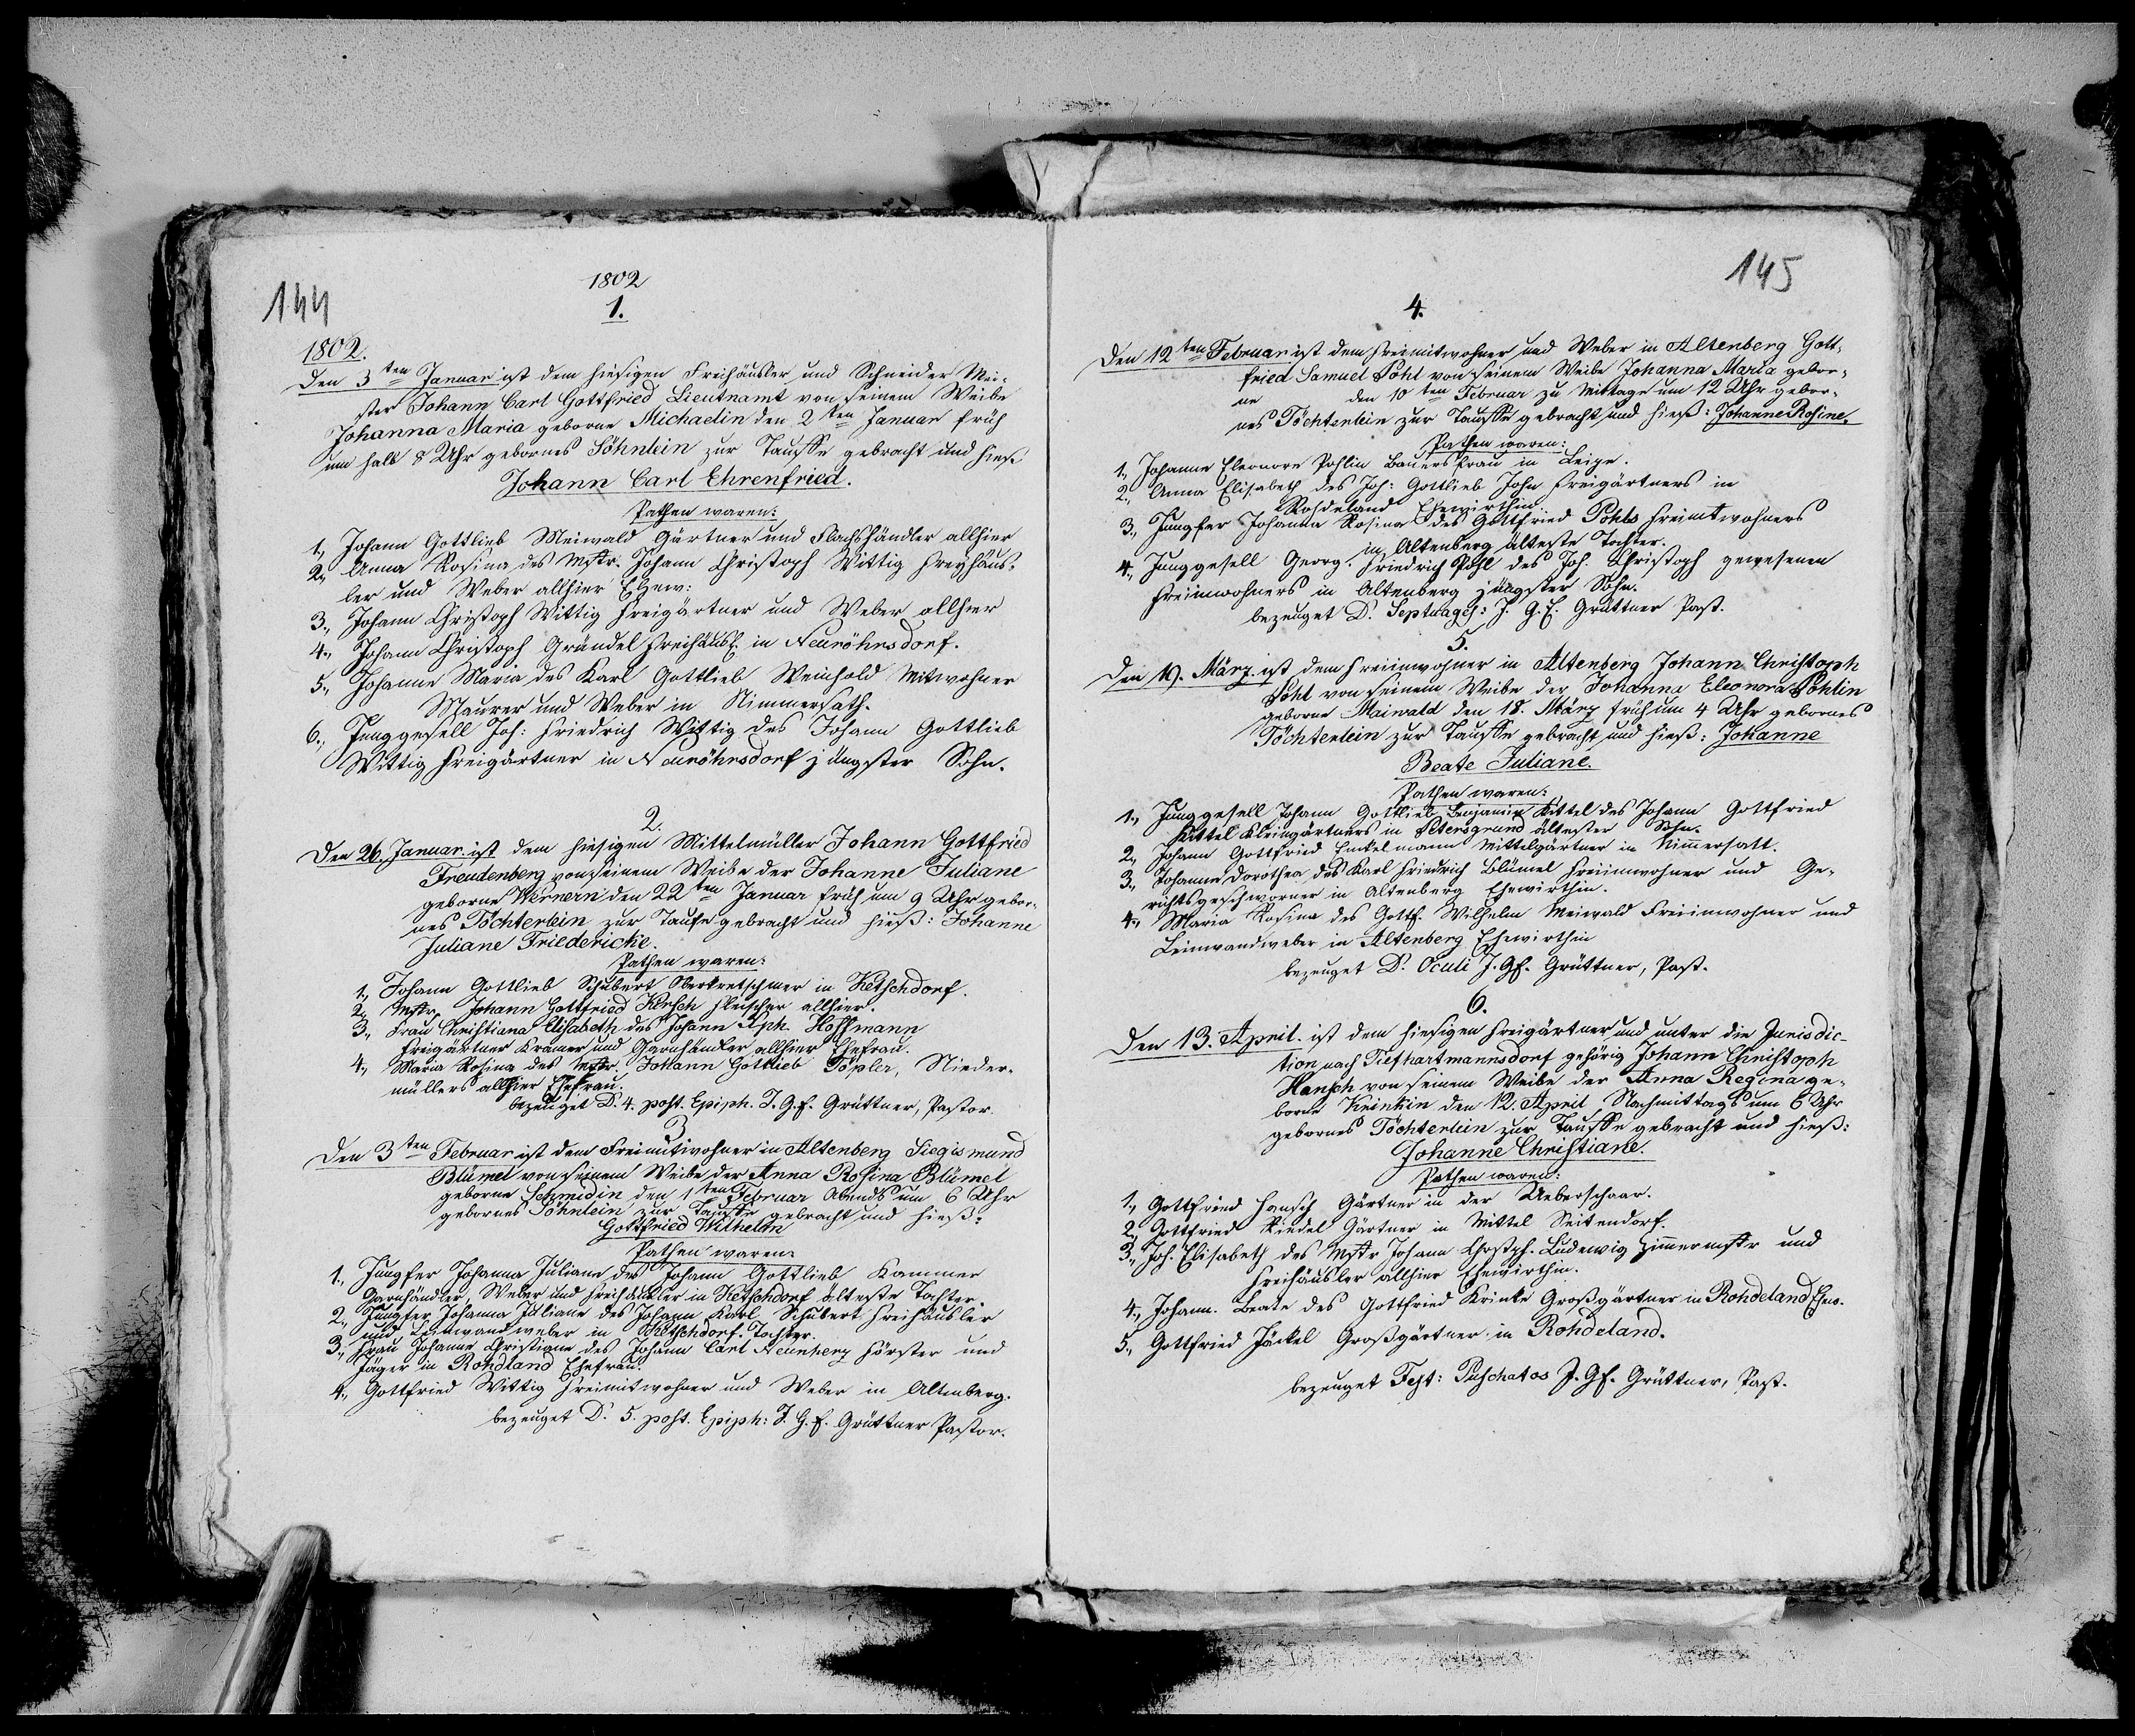 144
1802
1.
1802.
Den 3ten Januar ist dem hiesigen Freihäusler und Schneider Mei-
ster Johann Carl Gottfried Lieutnamt von seinem Weibe
Johanna Maria geborne Michaelin den 2ten Januar früh
um halb 8 Uhr gebornes Söhnlein zur Tauffe gebracht und hieß
Johann Carl Ehrenfried.
Pathen waren:
1., Johann Gottlieb Meiwald Gärtner und Flachshändler allhier
2., Anna Rosina des Mstr. Johann Christoph Wittig Freyhäus-
ler und Weber allhier Ehew:
3., Johann Christoph Wittig Freigärtner und Weber allhier
4., Johann Christoph Gründel Freihäusl. in Neuröhrsdorf.
5., Johanne Maria des Karl Gottlieb Weinhold Mitwohner
Maurer und Weber in Nimmersath.
6., Junggesell Joh: Friedrich Wittig des Johann Gottlieb
Wittig Freigärtner in Neuröhrsdorf jüngster Sohn.
2.
Den 26. Januar ist dem hiesigen Mittelmüller Johann Gottfried
Freudenberg von seinem Weibe der Johanne Juliane
geborne Wernern den 22ten Januar früh um 9 Uhr gebor-
nes Töchterlein zur Taufe gebracht und hieß: Johanne
Juliane Friedericke.
Pathen waren:
1., Johann Gottlieb Schubert Oberkretschmer in Ketschdorf.
2., Mstr. Johann Gottfried Hensch Fleischer allhier.
3., Frau Christiana Elisabeth des Johann Kph. Hoffmann
Freigärtner Kramer und Garnhändler allhier Ehefrau.
4., Maria Rosina des Mstr. Johann Gottlieb Töpler, Nieder-
müllers allhier Ehefrau.
bezeuget D. 4. post. Epiph. J. G. F. Grüttner, Pastor.
3
Den 3ten Februar ist dem Freimitwohner in Altenberg Siegismund
Blümel von seinem Weibe der Anna Rosina Blümel
geborne Schmidin den 1ten Februar Abends um 6 Uhr
gebornes Söhnlein zur Tauffe gebracht und hieß:
Gottfried Wilhelm
Pathen waren:
1., Jungfer Johanna Juliane des Johann Gottlieb Kammer
Garnhändler, Weber und Freihäusler in Ketschdorf älteste Tochter.
2., Jungfer Johanna Juliane des Johann Karl Schubert Freihäusler
und Leinwandweber in Ketschdorf. Tochter.
3., Frau Johanne Christiane des Johann Carl Neunherz Förster und
Jäger in Rohdland Ehefrau.
4., Gottfried Wittig Freimitwohner und Weber in Altenberg.
bezeuget D. 5. post. Epiph: J. G. F. Grüttner Pastor.
145
4.
Den 12ten Februar ist dem Freimitwohner und Weber in Altenberg Gott-
fried Samuel Pohl von seinem Weibe Johanna Maria gebor-
ne den 10ten Februar zu Mittage um 12 Uhr gebor-
nes Töchterlein zur Tauffe gebracht und hieß: Johanne Rosine.
Pathen waren:
1., Johanne Eleonore Pohlin Bauersfrau in Leipe.
2., Anna Elisabeth des Joh: Gottlieb John Freigärtners in
Rohdeland Ehewirthin.
3., Jungfer Johanna Rosina des Gottfried Pohls Freimitwohners
in Altenberg älteste Tochter.
4., Junggesell Georg. Friedrich Pohl des Joh. Christoph gewesenen
Freiinwohners in Altenberg jüngster Sohn.
bezeuget D. Septuages: J. G. F. Grüttner Past.
5.
Den 19. März. ist dem Freiinwohner in Altenberg Johann Christoph
Pohl von seinem Weibe der Johanne Eleonora Pohlin
geborne Meiwald den 18. März früh um 4 Uhr gebornes
Töchterlein zur Tauffe gebracht und hieß: Johanne
Beate Juliane.
Pathen waren:
1., Junggesell Johann Gottlieb Benjamin Kittel des Johann Gottfried
Kittel Kleingärtners in Petersgrund ältester Sohn.
2., Johann Gottfried Enkelmann Mittelgärtner in Nimersatt.
3., Johanne Dorothea des Karl Friedrich Blümel Freiinwohner und Ge-
richtsgeschworner in Altenberg Ehewirthin.
4., Maria Rosina des Gottf. Wilhelm Meiwald Freiinwohner und
Leinwandweber in Altenberg Ehewirthin
bezeuget D. Oculi J. Gf. Grüttner, Past.
6.
Den 13. April. ist dem hiesigen Freigärtner und unter die Jurisdic-
tion nach Tiefhartmannsdorf gehörig Johann Christoph
Hensch von seinem Weibe der Anna Regina ge-
borne Krinkin den 12. April Nachmittags um 6 Uhr
gebornes Töchterlein zur Tauffe gebracht und hieß:
Johanne Christiane.
Pathen waren:
1., Gottfried Hansch Gärtner in der Ueberschaar.
2., Gottfried Riedel Gärtner in Mittel Seitendorf.
3., Joh. Elisabeth des Mstr Johann Chrstph. Ludewig Zimmermstr und
Freihäusler allhier Ehewirthin.
4., Johann. Beate des Gottfried Krinke Großgärtner in Rohdeland Ehew.
5., Gottfried Jäckel Großgärtner in Rohdeland.
bezeuget Fest: Paschatos J. Gf. Grüttner, Past.